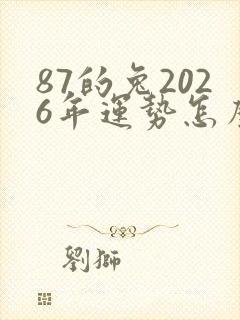 87的兔202
6年運勢怎
劉獅